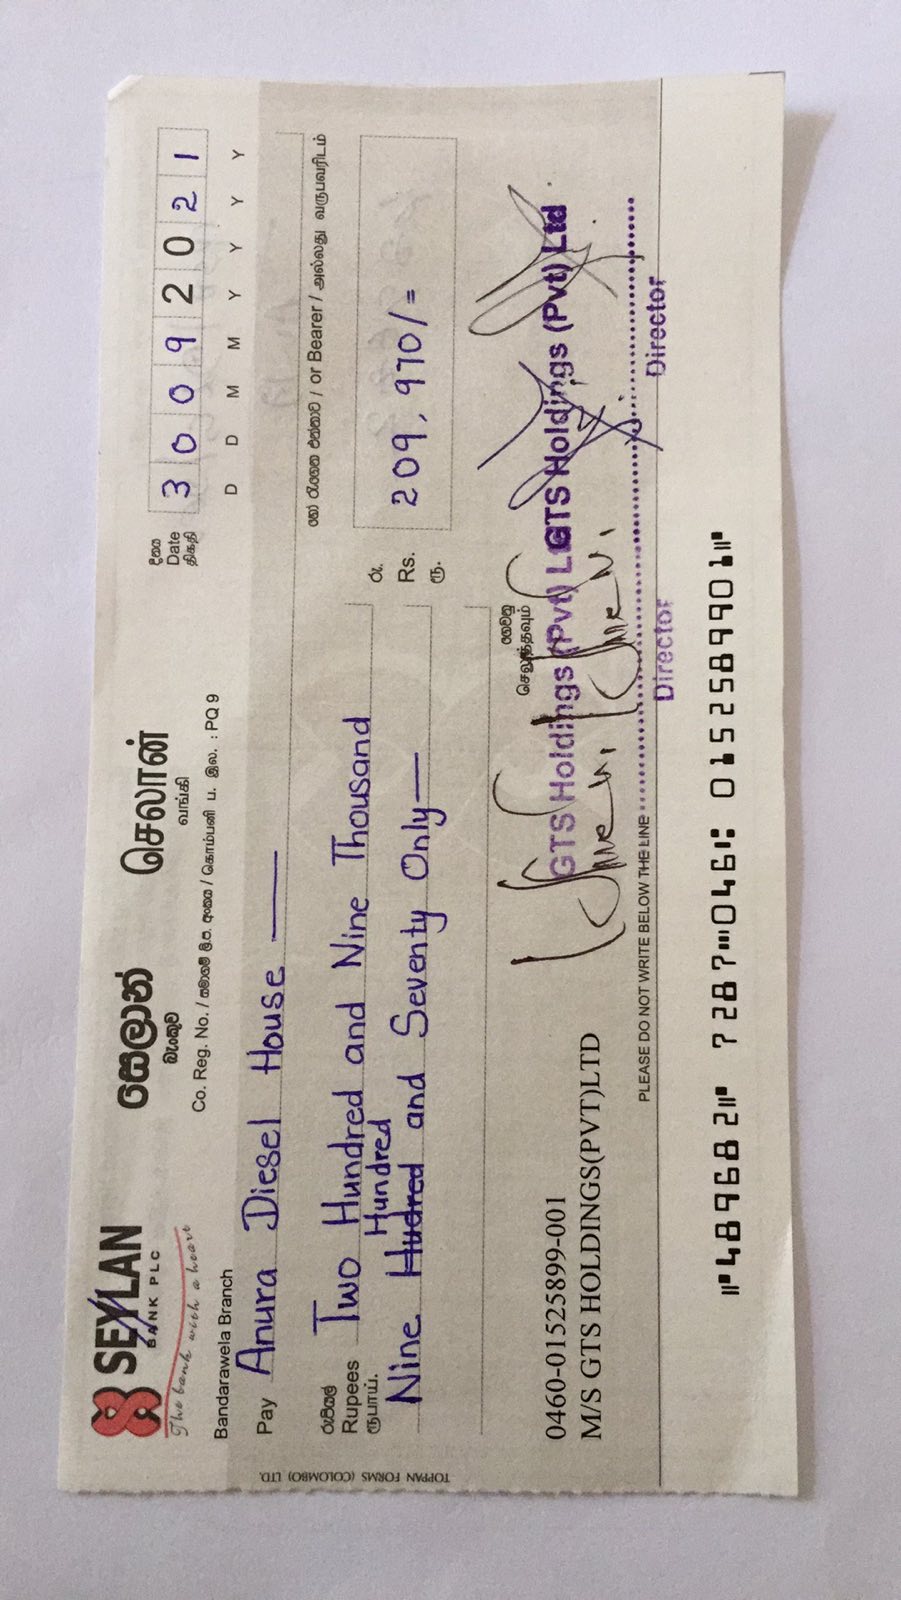 SEYLAN
BANK PLC
The bank with a heart
සෙලාන්
බැංකුව
செலான்
வங்கி
Co. Reg. No. / සමාගම් ලි.ප. අංකය / கொம்பனி ப. இல. : PQ 9
දිනය
Date
திகதி
3 0 0 9 2 0 2 1
D D M M Y Y Y Y
Bandarawela Branch
Pay Anura Diesel House
හෝ රැගෙන එන්නාට / or Bearer / அல்லது வருபவரிடம்
රුපියල්
Rupees
ரூபாய்.
Two Hundred and Nine Thousand
Hundred
Nine Hudred and Seventy Only
රු.
Rs.
ரூ.
209, 970/=
ගෙවනු
செலுத்தவும்
GTS Holdings (Pvt) Ltd
GTS Holdings (Pvt) Ltd
Director
Director
0460-01525899-001
M/S GTS HOLDINGS(PVT)LTD
PLEASE DO NOT WRITE BELOW THE LINE
⑈489682⑈ 7287⑉046⑆ 0152589901⑈
TOPPAN FORMS (COLOMBO) LTD.